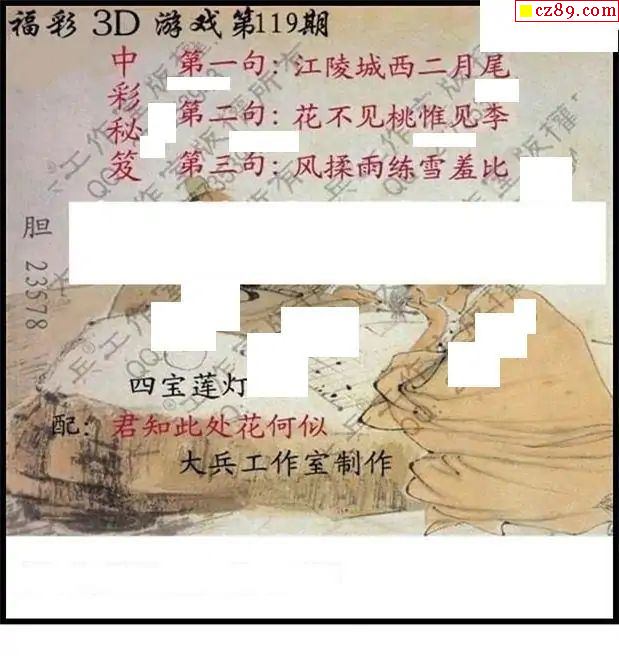 cz89.com
福彩 3D 游戏第119期
中彩秘笈
第一句：江陵城西二月尾
第二句：花不见桃惟见李
第三句：风揉雨练雪羞比
胆 23578
四宝莲灯
配：君知此处花何似
大兵工作室制作